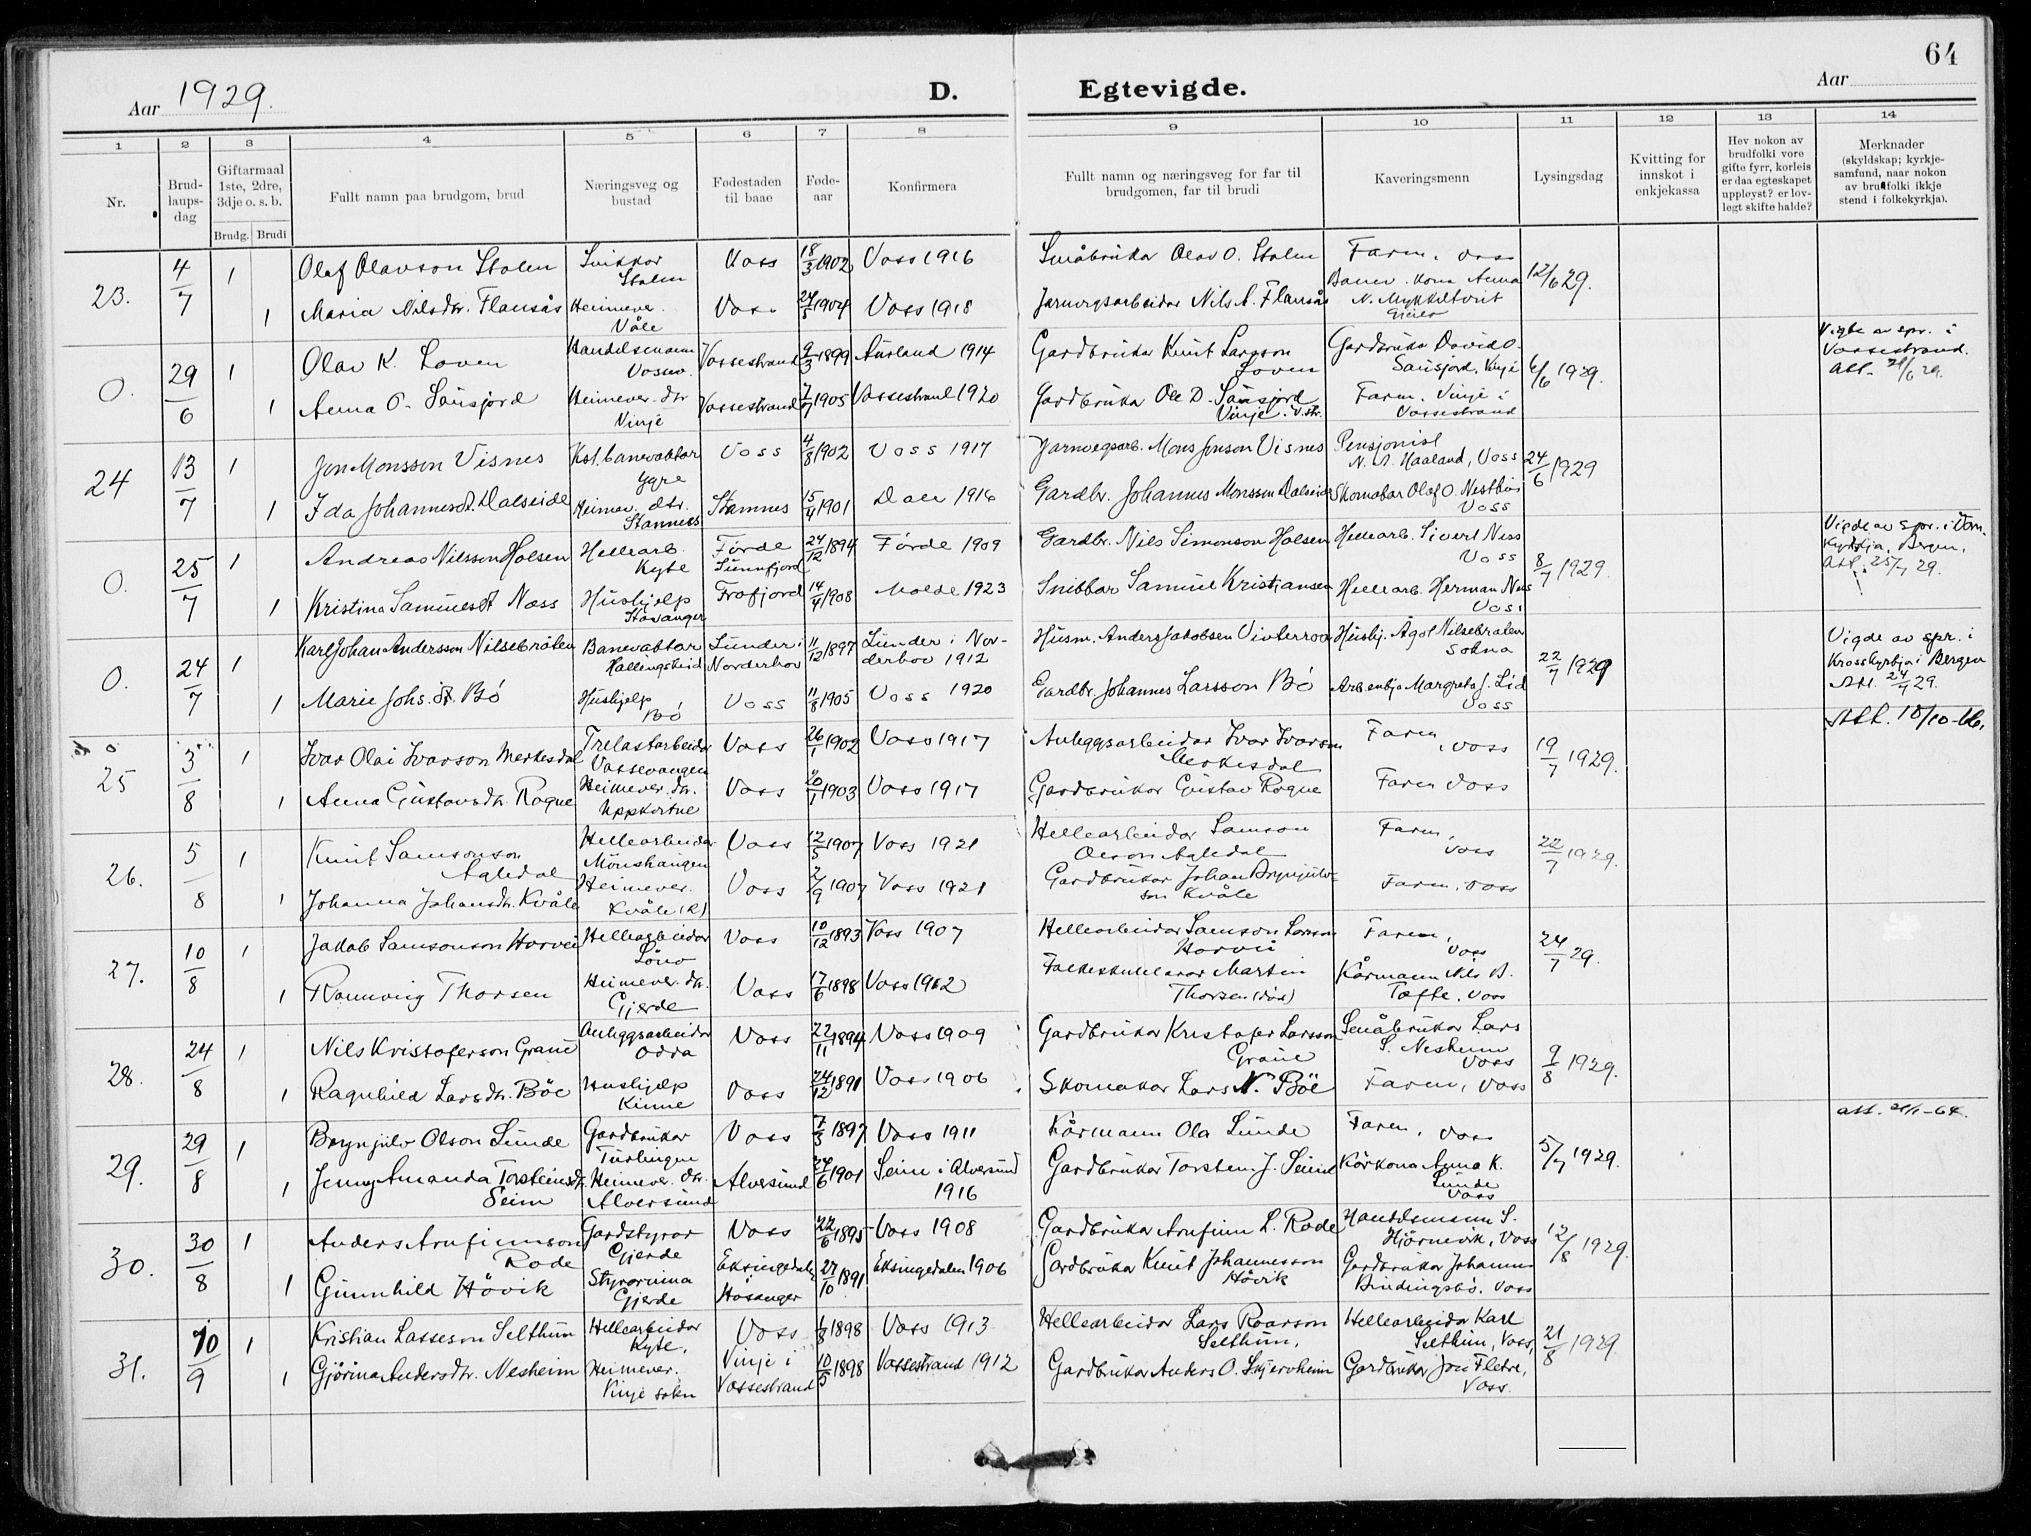 64
Aar 1929.
D. Egtevigde.
Aar
1 2 3 4 5 6 7 8 9 10 11 12 13 14
Nr.
Brud-
laups-
dag
Giftarmaal
1ste, 2dre,
3dje o. s. b.
Brudg. Brudi
Fullt namn paa brudgom, brud
Næringsveg og
bustad
Fødestaden
til baae
Føde-
aar
Konfirmera
Fullt namn og næringsveg for far til
brudgomen, far til brudi
Kaveringsmenn
Lysingsdag
Kvitting for
innskot i
enkjekassa
Hev nokon av
brudfolki vore
gifte fyrr, korleis
er daa egteskapet
uppløyst? er lov-
legt skifte halde?
Merknader
(skyldskap; kyrkje-
samfund, naar nokon
av brudfolki ikkje
stend i folkekyrkja).
23. 4/7 1 Olaf Olavson Stalen Snikkar Stalen Voss 18/3 1902 Voss 1916 Småbrukar Olav O. Stalen Faren, Voss 12/6 29.
1 Maria Nilsdtr. Flansås Heimever. Våle Voss 24/5 1904 Voss 1918 Jarnvegsarbeidar Nils A. Flansås Banev. kona Anna N. Mykkeltveit
O. 29/6 1 Olav K. Loven Handelsmann Vossev. Vossestrand 9/3 1899 Aurland 1914 Gardbrukar Knut Larsson Loven Gardbrukar David O. Saüsjord, Vinje 6/6 1929. Vigde av spr. i Vossestrand. Att. 29.
1 Anna O. Saüsjord Heimever. dtr. Vinje Vossestrand 7/7 1905 Vossestrand 1920 Gardbrukar Ole D. Saüsjord Vinje. V.str. Faren, Vinje i Vossestrand
24 13/7 1 Jon Monsson Visnes Kst. banevaktar Ygre Voss 4/8 1902 Voss 1917 Jarnvegsarb. Mons Jonson Visnes Pensjonist N. A. Haaland, Voss 24/6 1929
1 Ida Johannesdt. Dalseide Heimev. dtr. Stamnes Stamnes 15/4 1901 Dale 1916 Gardbr. Johannes Monsson Dalseide Skomakar Olaf O. Nestbø Voss
O. 25/7 1 Andreas Nilsson Holsen Hellearb. Kyte Førde Sunnfjord 24/12 1894 Førde 1909 Gardbr. Nils Simonson Holsen Hellearb. Sivert Ness Voss 8/7 1929. Vigde av spr. i Dom- kyrkja, Bergen, Att. 25/7 29.
1 Kristina Samuelsdt Næss Hushjelp Stavanger Frafjord 14/4 1908 Molde 1923 Snikkar Samuel Kristiansen Hellearb. Herman Ness Voss
O. 24/7 1 Karl Johan Andersson Nilsebråten Banevaktar Hallingskeid Lunder i Norderhov 11/12 1897 Lunder i Nor- derhov 1912 Husm. Anders Jakobsen Vinterroa Hushj. Ågot Nilsebråten Sokna 22/7 1929 Vigde av spr. i Krosskyrkja i Bergen Att. 24/7 29.
1 Marie Johs. dt. Bö Hushjelp Bö Voss 11/8 1905 Voss 1920 Gardbr. Johannes Larsson Bö Arb.enkja Margreta J. Lid Voss
Att. 18/10-66.
25 3/8 1 Ivar Olai Ivarson Merkesdal Trelastarbeidar Vossevangen Voss 26/1 1902 Voss 1917 Anleggsarbeidar Ivar Ivarson Merkesdal Faren, Voss 19/7 1929.
1 Anna Gustavsdtr. Rogne Heimever. dtr. Uppheim Voss 20/1 1903 Voss 1917 Gardbrukar Gustav Rogne Faren Voss
26. 5/8 1 Knut Samsonson Agledal Hellearbeidar Mönshaugen Voss 12/5 1907 Voss 1921 Hellearbeidar Samson Olson Agledal Faren, Voss 22/7 1929.
1 Johanna Johansdtr. Kvåle Heimever. Kvåle (R) Voss 2/9 1907 Voss 1921 Gardbrukar Johan Brynjulv- son Kvåle Faren, Voss
27. 10/8 1 Jakob Samsonson Horvei Hellearbeidar Löno Voss 10/12 1893 Voss 1907 Hellearbeidar Samson Larson Horvei Faren, Voss 24/7 29.
1 Rannveig Thorsen Heimever. dtr. Gjerde Voss 17/6 1898 Voss 1912 Folkeskulelærar Martin Thorsen (död) Kårmann Nils B. Tøfte, Voss
28. 24/8 1 Nils Kristoferson Graue Anleggsarbeidar Odda Voss 22/11 1894 Voss 1909 Gardbrukar Kristofer Larsson Graue Småbrukar Lars S. Nesheim Voss 9/8 1929.
1 Ragnhild Larsdtr. Böe Hushjelp Kinne Voss 24/12 1891 Voss 1906 Skomakar Lars N. Böe Faren, Voss
29. 29/8 1 Brynjulv Olson Lunde Gardbrukar Tuslingen Voss 7/3 1897 Voss 1911 Kårmann Ola Lunde Faren, Voss 5/7 1929. att. 21/1-64.
1 Jenny Amanda Torsteinsdt. Seim Heimever. dtr. Alversund Alversund 24/6 1901 Seim i Alversund 1916 Gardbrukar Torstein J. Seim Kårkona Anna K. Lunde Voss
30. 30/8 1 Anders Arnfinnson Rode Gardstyrar Gjerde Voss 22/6 1895 Voss 1908 Gardbrukar Arnfinn L. Rode Handelsmann S. Hjörnevik, Voss 12/8 1929.
1 Gunnhild Hövik Styrarinna Gjerde Eksingedalen Hosanger 27/10 1891 Eksingedalen 1906 Gardbrukar Knut Johannesson Hövik Gardbrukar Johannes Bindingsbø. Voss
31. 10/9 1 Kristian Lasseson Selthun Hellearbeidar Kyte, Voss 1/3 1898 Voss 1913 Hellearbeidar Lars Roarson Selthun, Hellearbeidar Karl Selthun, Voss, 21/8 1929
1 Gjörina Andersdtr. Nesheim Heimever. Vinje sokn Vinje i Vossestrand 10/5 1898 Vossestrand 1912 Gardbrukar Anders O. Skjervheim Gardbrukar Jon Fletre, Voss.